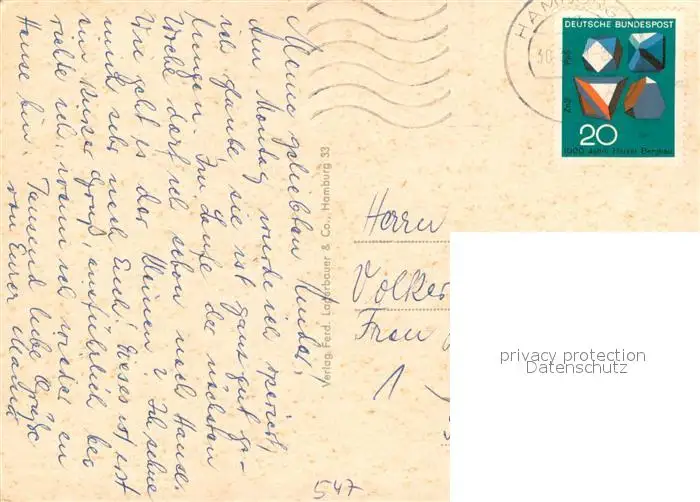 Meine geliebten Kinder,
Am Montag wurde ich operiert,
ich glaube sie ist ganz gut ge-
lungen. Im Laufe der nächsten
Woche darf ich schon nach Hause.
Wie geht es der Kleinen? Ich sehne
mich sehr nach Euch! Dieses ist erst
ein kurzer Gruß, ausführlich be-
richte ich, wenn ich wieder zu
Hause bin.
Tausend liebe Grüße
von Eurer
Verlag Ferd. Lagerbauer & Co., Hamburg 33
HAMBURG
30.
DEUTSCHE BUNDESPOST
20
1000 Jahre Harzer Bergbau
Herrn
Volker
Frau
1
privacy protection
Datenschutz
547